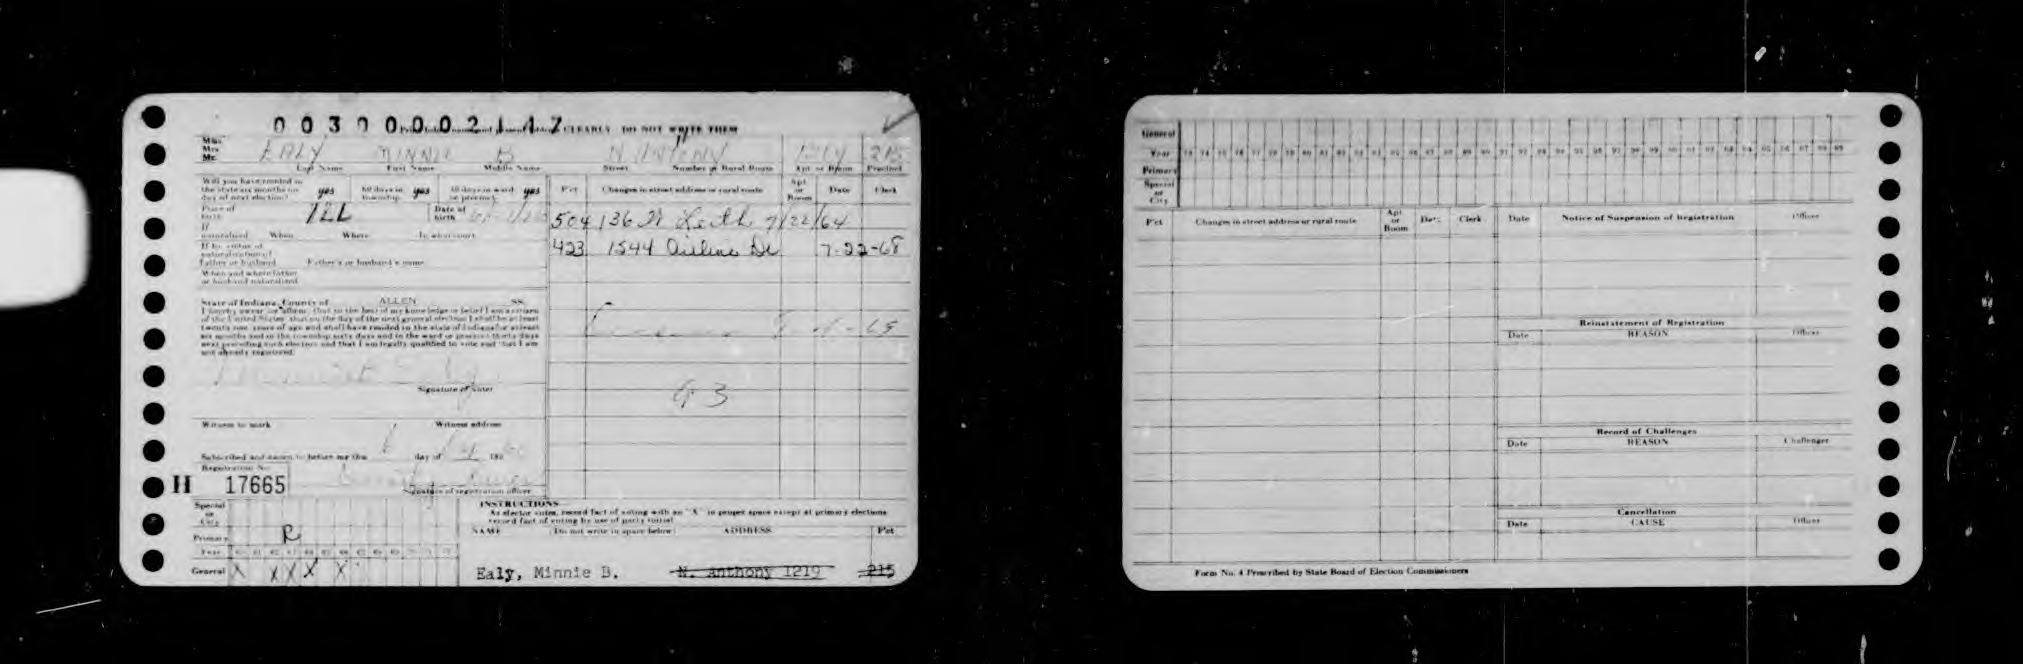 003000002147
CLEARLY DO NOT WRITE THEM
Miss
Mrs.
Mr. EALY MINNIE B N. ANTHONY 1219 215
Last Name First Name Middle Name Street Number or Rural Route Apt or Room Precinct
Will you have resided in
the state six months on yes 60 days in yes 30 days in ward yes
day of next election? township or precinct
Place of
birth ILL Date of
birth
If
naturalized When Where In what court
If by virtue of
naturalization of
father or husband Father's or husband's name
When and where father
or husband naturalized
State of Indiana, County of ALLEN SS
I hereby swear (or affirm) that to the best of my knowledge or belief I am a citizen
of the United States, that on the day of the next general election I shall be at least
twenty one years of age and shall have resided in the state of Indiana for at least
six months and in the township sixty days and in the ward or precinct thirty days
next preceding such election and that I am legally qualified to vote and that I am
not already registered.
Signature of voter
Witness to mark Witness address
Subscribed and sworn to before me this day of 19
Registration No.
H 17665
Signature of registration officer
P'ct Changes in street address or rural route Apt or Room Date Clerk
504 136 W Leith 9/22/64
423 1544 7-22-68
93
Special
or
City
Primary R
Year
General X X X X X
INSTRUCTIONS
As elector votes, record fact of voting with an "X" in proper space except at primary elections
record fact of voting by use of party initial
NAME (Do not write in space below) ADDRESS P'ct
Ealy, Minnie B. N. Anthony 1219 215
General
Year 73 74 75 76 77 78 79 80 81 82 83 84 85 86 87 88 89 90 91 92 93 94 95 96 97 98 99 00 01 02 03 04 05 06 07 08 09
Primary
Special
or
City
P'ct Changes in street address or rural route Apt or Room Date Clerk
Date Notice of Suspension of Registration Officer
Reinstatement of Registration
Date REASON Officer
Record of Challenges
Date REASON Challenger
Cancellation
Date CAUSE Officer
Form No. 4 Prescribed by State Board of Election Commissioners